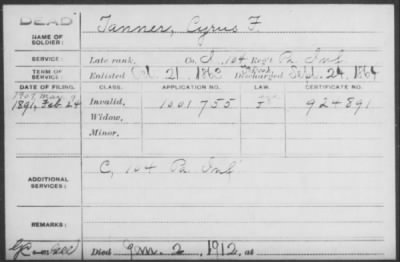 DEAD
NAME OF SOLDIER: Tanner, Cyrus F.
SERVICE: Late rank, Co. I, 104 Reg't Pa Inf
TERM OF SERVICE: Enlisted Oct. 21 1862 Discharged Sept. 24, 1864
DATE OF FILING. CLASS. APPLICATION NO. LAW. CERTIFICATE NO.
1907 May 9
1891, Feb 24 Invalid, 1001755 924891
Widow,
Minor,
ADDITIONAL SERVICES: C, 104 Pa Inf
REMARKS:
Died Jan. 2, 1912, at